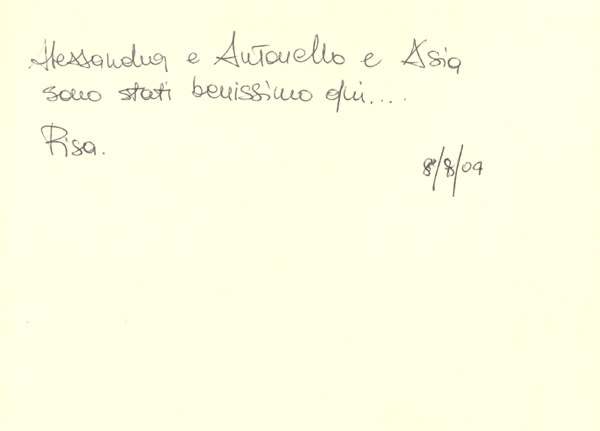 Alessandra e Antonello e Asia
sono stati benissimo qui....
Pisa.
8/8/09